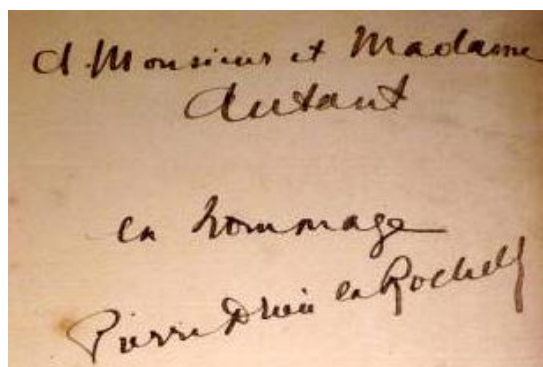 A Monsieur et Madame
Autant
en hommage
Pierre Drieu la Rochelle